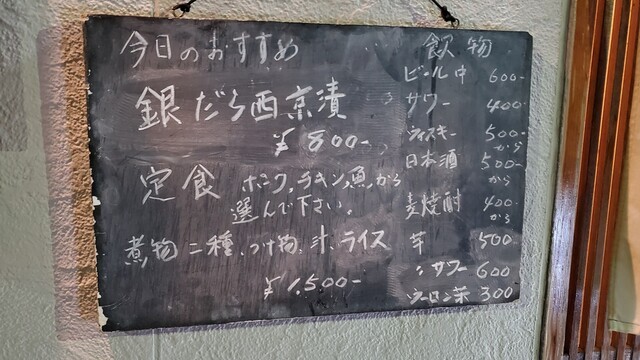 今日のおすすめ
銀だら西京漬
¥800-
定食 ポーク,チキン,魚,から
選んで下さい。
煮物二種、つけ物、汁、ライス
¥1,500-
飲物
ビール中 600-
サワー 400-
ウィスキー 500-
から
日本酒 500-
から
麦焼酎 400-
から
芋 500
〃サワー 600
ウーロン茶 300